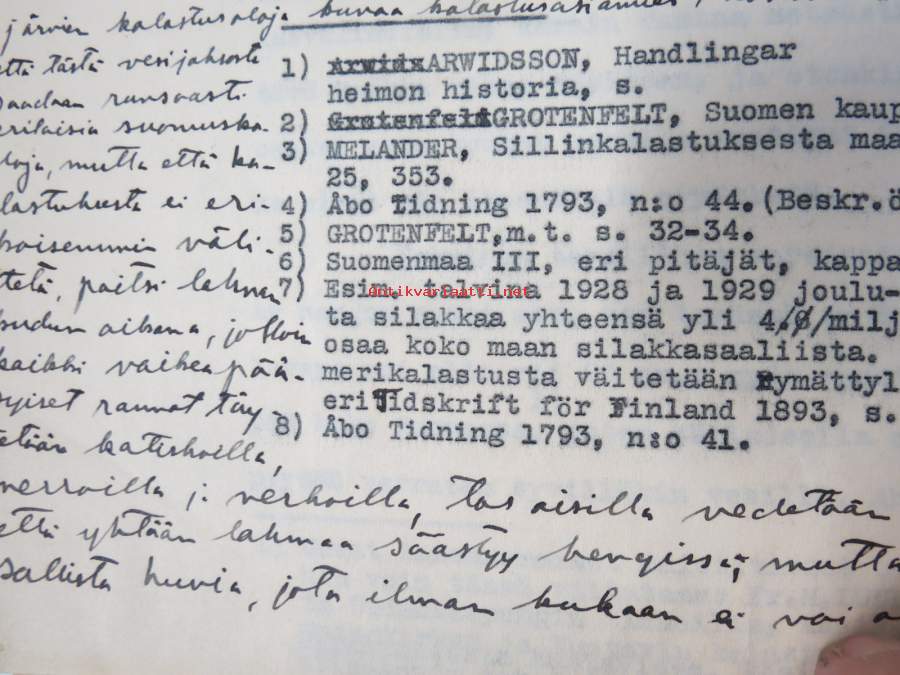 järvien kalastusoloja kuvaa kalastusasiamies
että tästä vesijaksosta
saadaan runsaasti
erilaisia suomuska-
loja, mutta että ka-
lastuksesta ei eri-
koisemmin väli-
tetä, paitsi lahnan
kudun aikana, jolloin
kaikki vaiheapää-
syiset rannat täy-
tetään katiskoilla,
merroilla ja verkoilla,
1) ARWIDSSON, Handlingar
heimon historia, s.
2) GROTENFELT, Suomen kaup
3) MELANDER, Sillinkalastuksesta maa
25, 353.
4) Åbo Tidning 1793, n:o 44. (Beskr.ö
5) GROTENFELT,m.t. s. 32-34.
6) Suomenmaa III, eri pitäjät, kappa
7) Esim. talvina 1928 ja 1929 joulu-
antikvariaatti.net
ta silakkaa yhteensä yli 4,0/milj
osaa koko maan silakkasaaliista.
merikalastusta väitetään Rymättyl
eri Tidskrift för Finland 1893, s.
8) Åbo Tidning 1793, n:o 41.
vedetään
että yhtään lahnaa säästyy hengissä, mutta
sallista huvia, jota ilman kukaan ei voi